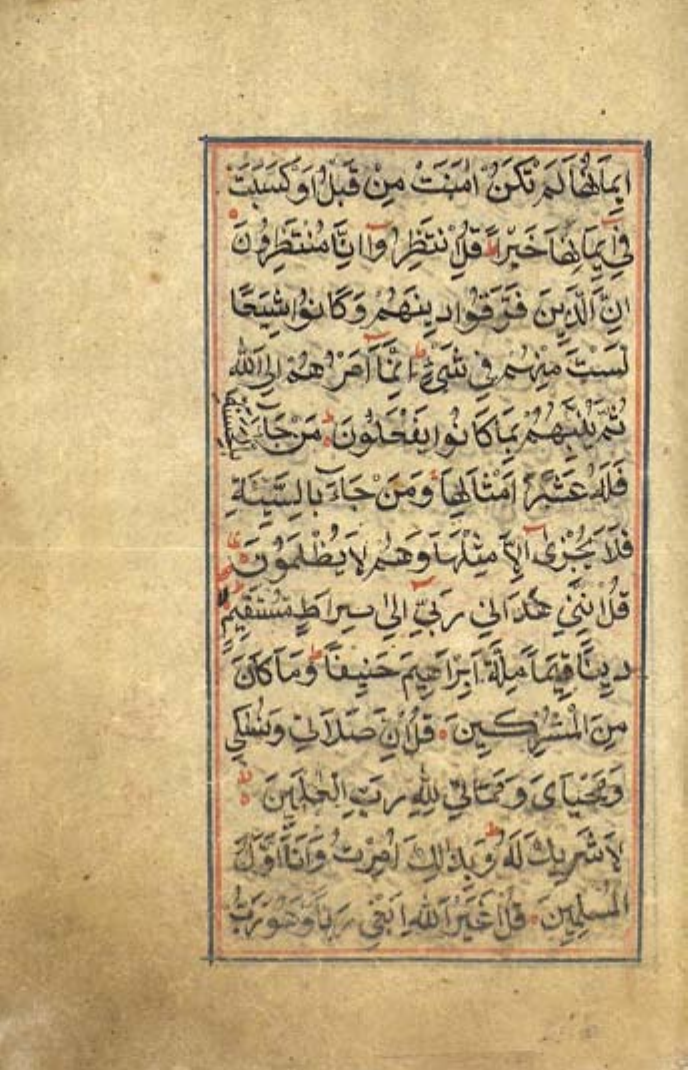 اِيمَانُهَا لَمْ تَكُنْ اٰمَنَتْ مِنْ قَبْلُ اَوْ كَسَبَتْ
فِي اِيمَانِهَا خَيْرًا قُلِ انْتَظِرُوا اِنَّا مُنْتَظِرُونَ
اِنَّ الَّذِينَ فَرَّقُوا دِينَهُمْ وَكَانُوا شِيَعًا
لَسْتَ مِنْهُمْ فِي شَيْءٍ اِنَّمَا اَمْرُهُمْ اِلَى اللّٰهِ
ثُمَّ يُنَبِّئُهُمْ بِمَا كَانُوا يَفْعَلُونَ مَنْ جَاءَ بِالْحَسَنَةِ
فَلَهُ عَشْرُ اَمْثَالِهَا وَمَنْ جَاءَ بِالسَّيِّئَةِ
فَلَا يُجْزٰى اِلَّا مِثْلَهَا وَهُمْ لَا يُظْلَمُونَ
قُلْ اِنَّنِي هَدَانِي رَبِّي اِلٰى صِرَاطٍ مُسْتَقِيمٍ
دِينًا قِيَمًا مِلَّةَ اِبْرَاهِيمَ حَنِيفًا وَمَا كَانَ
مِنَ الْمُشْرِكِينَ قُلْ اِنَّ صَلَاتِي وَنُسُكِي
وَمَحْيَايَ وَمَمَاتِي لِلّٰهِ رَبِّ الْعٰلَمِينَ
لَا شَرِيكَ لَهُ وَبِذٰلِكَ اُمِرْتُ وَاَنَا اَوَّلُ
الْمُسْلِمِينَ قُلْ اَغَيْرَ اللّٰهِ اَبْغِي رَبًّا وَهُوَ رَبُّ